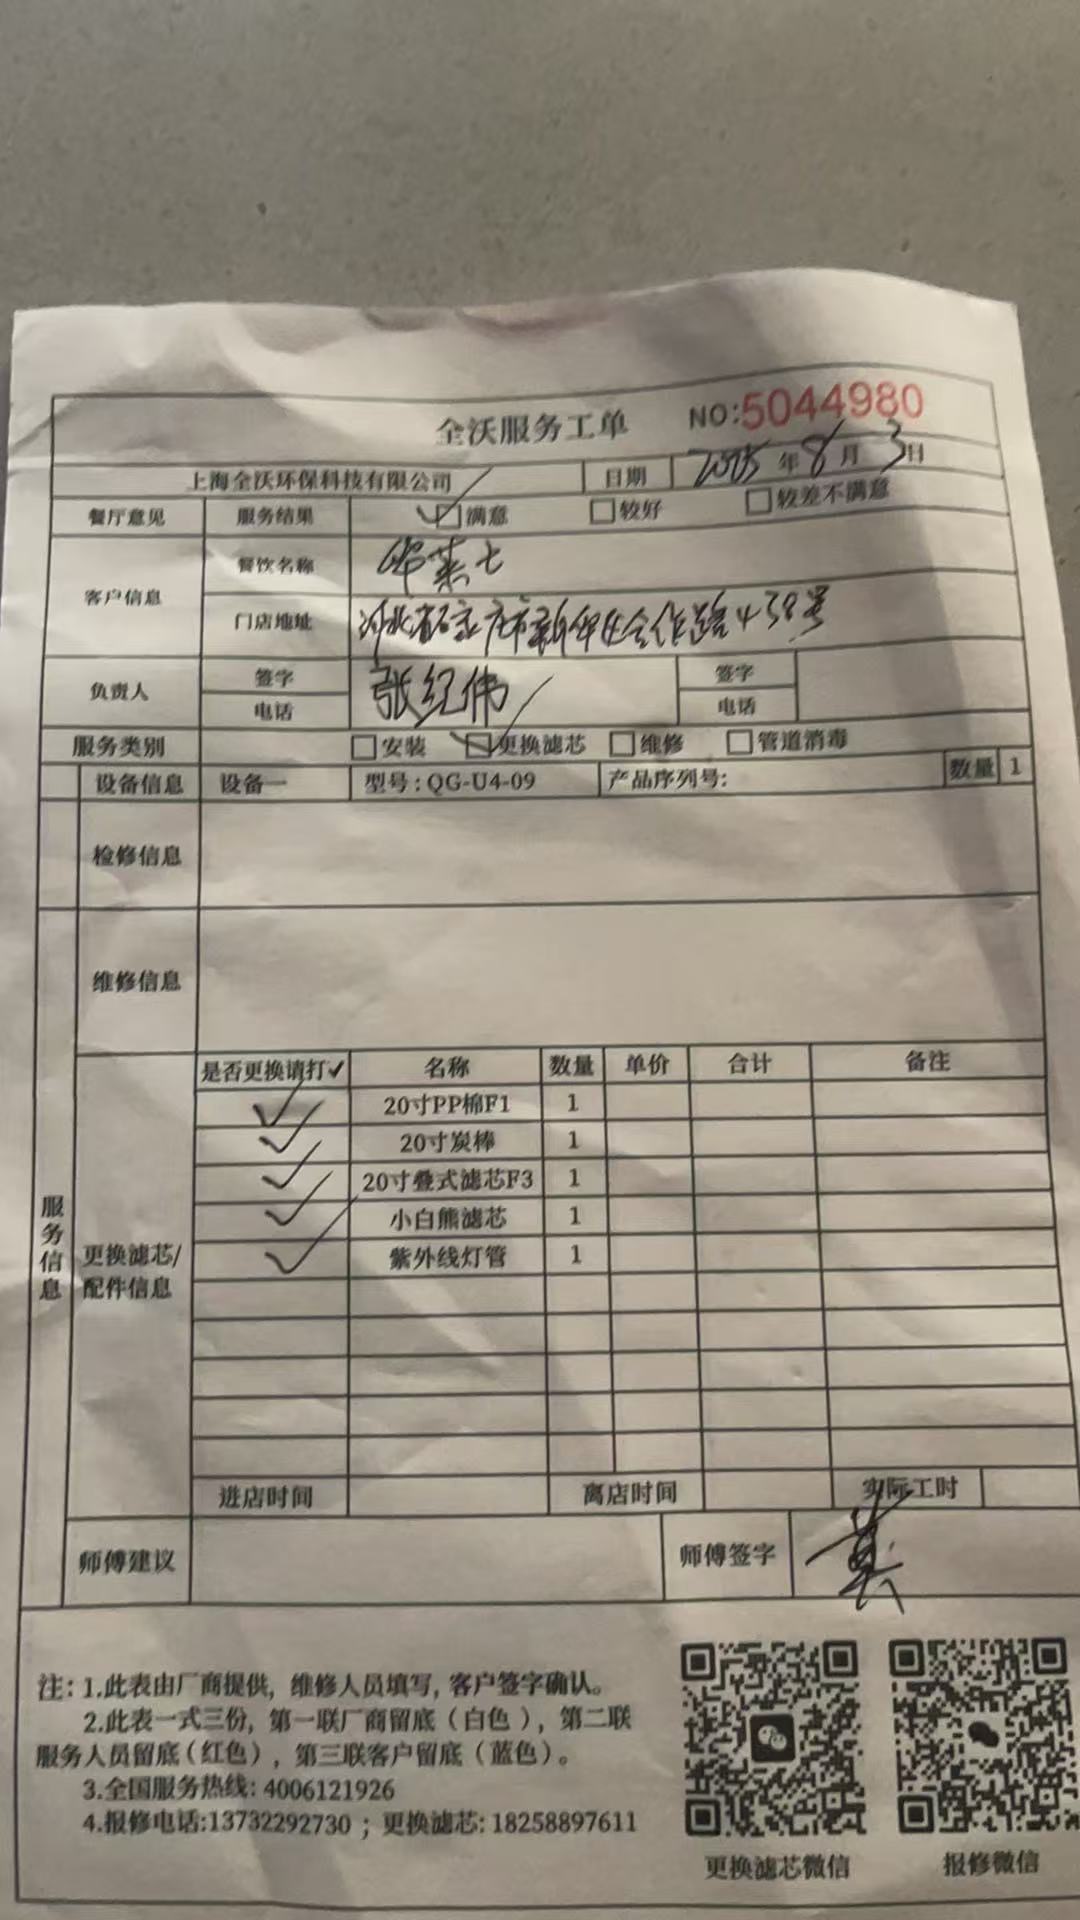 全沃服务工单 NO:5044980
上海全沃环保科技有限公司 日期 2025年8月3日
餐厅意见 服务结果 ✓□满意 □较好 □较差不满意
客户信息 餐饮名称 华莱士
门店地址 河北省石家庄市新华区合作路438号
负责人 签字 张纪伟 签字
电话 电话
服务类别 □安装 ✓□更换滤芯 □维修 □管道消毒
设备信息 设备一 型号:QG-U4-09 产品序列号: 数量 1
检修信息
维修信息
服务信息
更换滤芯/配件信息
是否更换请打✓ 名称 数量 单价 合计 备注
✓ 20寸PP棉F1 1
✓ 20寸炭棒 1
✓ 20寸叠式滤芯F3 1
✓ 小白熊滤芯 1
✓ 紫外线灯管 1
进店时间 离店时间 实际工时
师傅建议 师傅签字
注:1.此表由厂商提供,维修人员填写,客户签字确认。
2.此表一式三份,第一联厂商留底(白色),第二联
服务人员留底(红色),第三联客户留底(蓝色)。
3.全国服务热线:4006121926
4.报修电话:13732292730;更换滤芯:18258897611
更换滤芯微信 报修微信